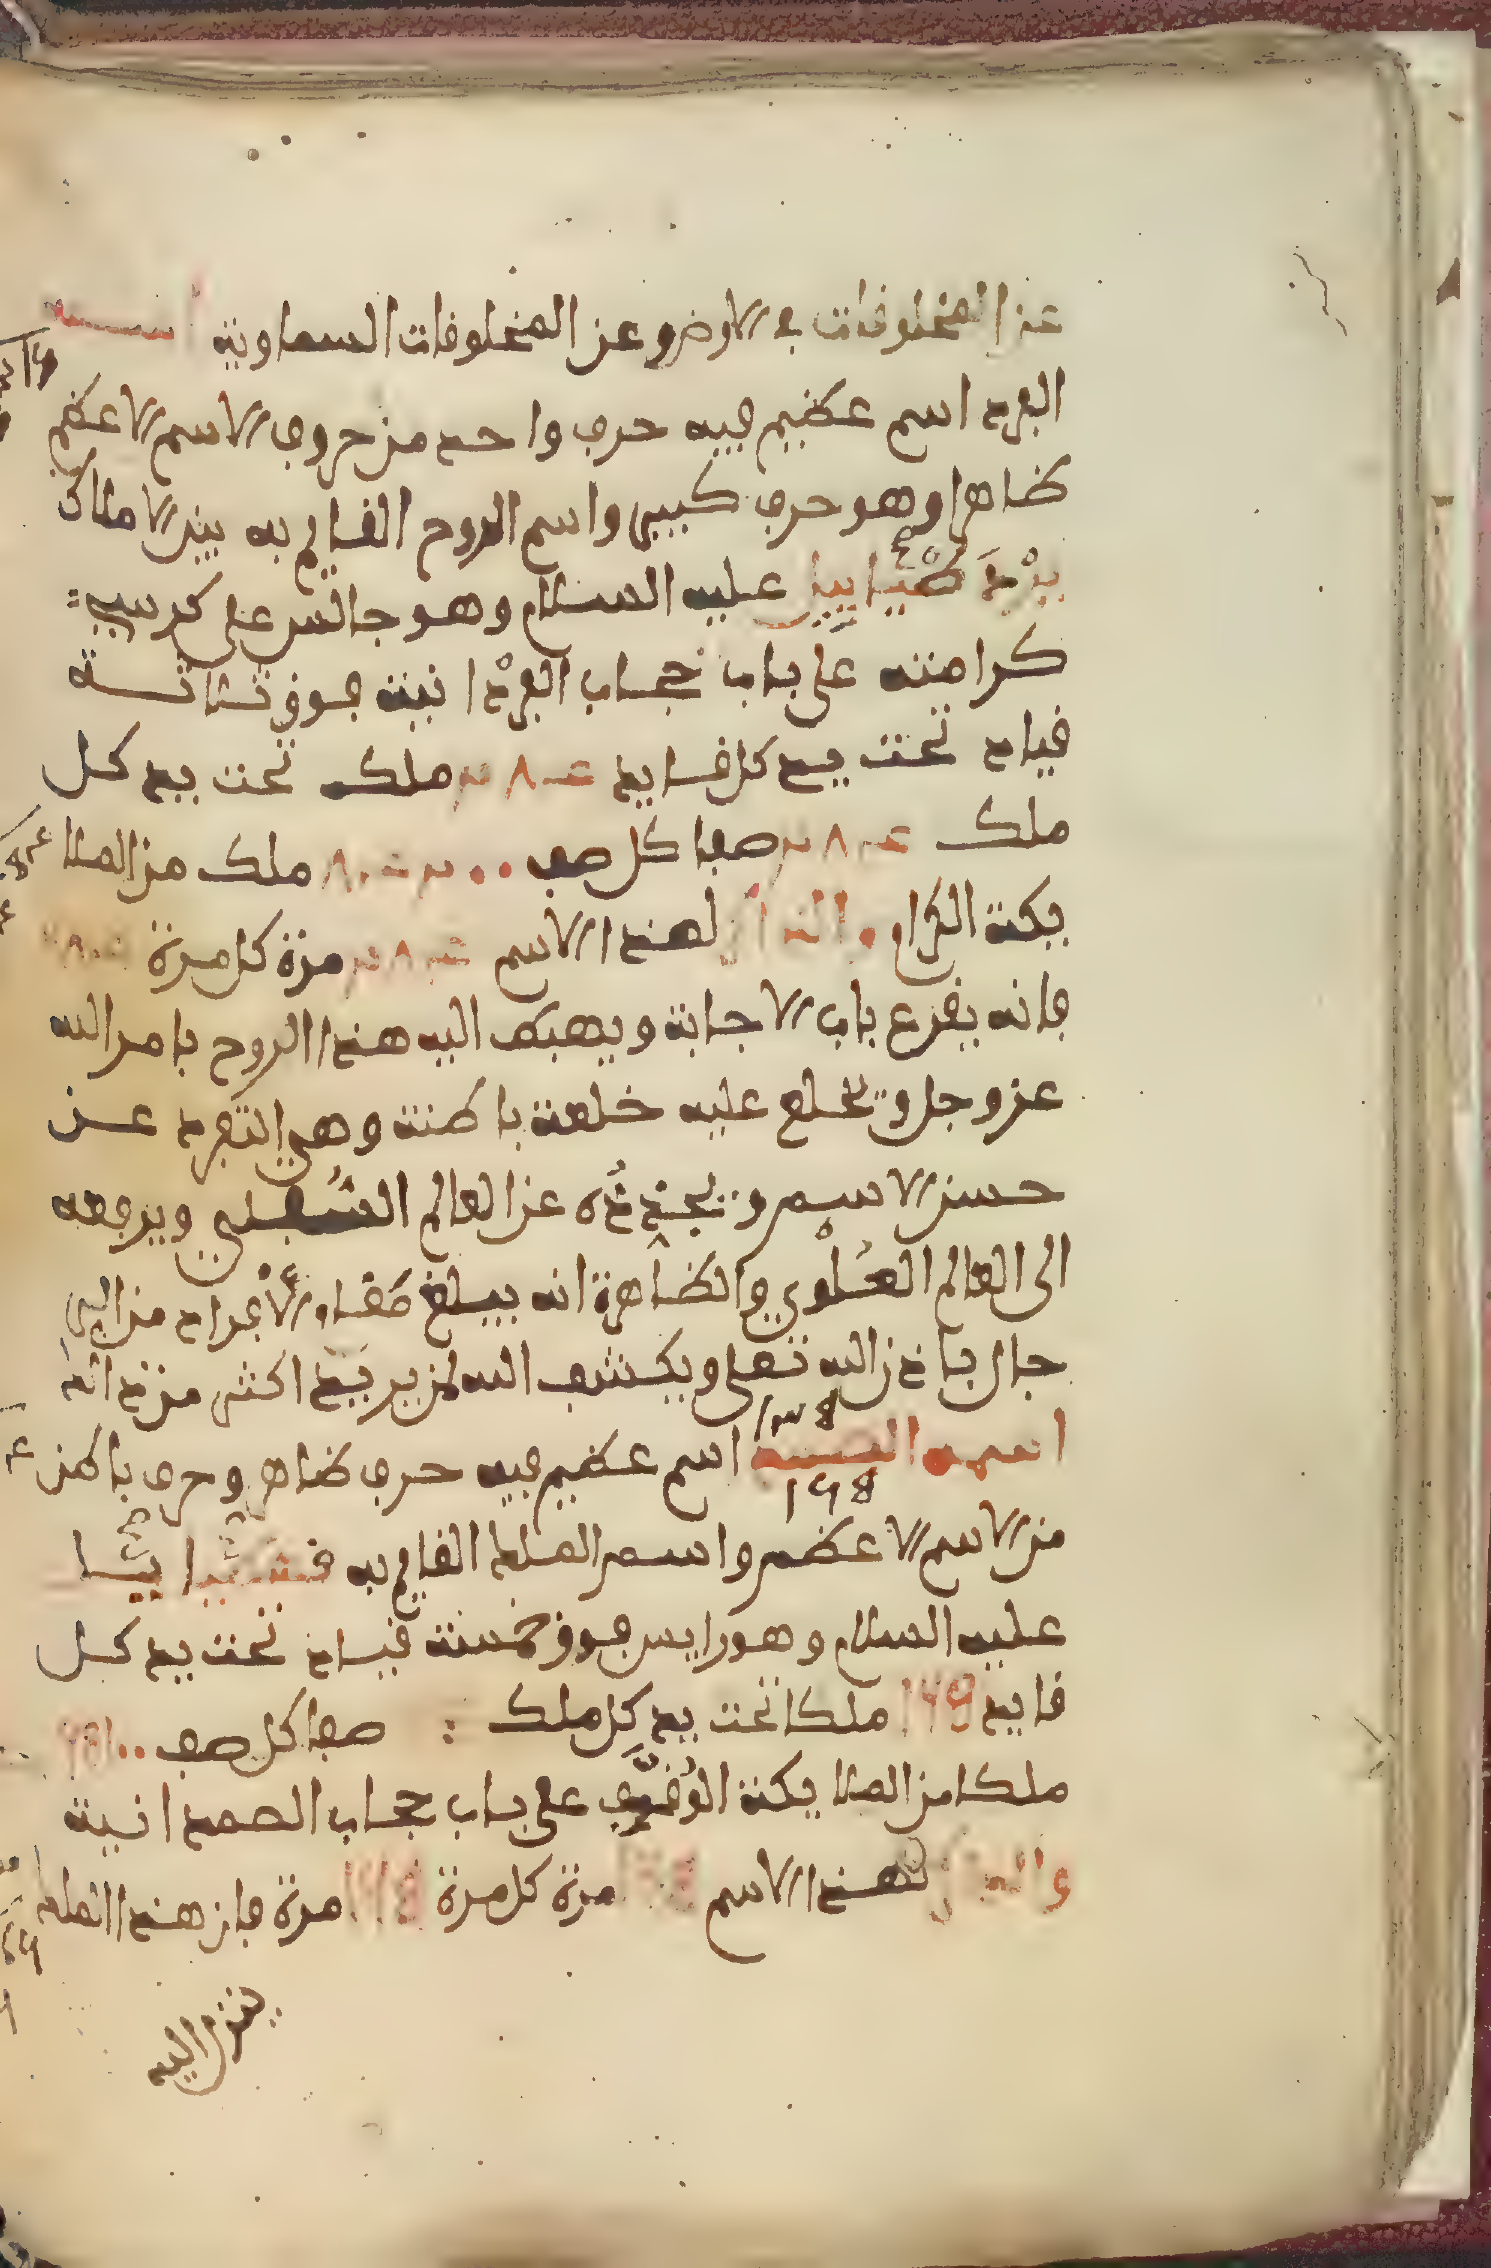 عن المخلوقات في الارض وعن المخلوقات السماوية اسمه
الفرد اسم عظيم فيه حرف واحد من حروف الاسم الاعظم
ظاهرا وهو حرف كبير واسم الروح القايم به بين الاملاك
عليه السلام وهو جالس على كرسي
كرامته على باب حجاب الفردانية فوق ثلاثة
قياد تحت يد كل قايد ملك تحت يد كل
ملك صفا كل صف ملك من الملا
يكة الكرام والذاكر لهذا الاسم مرة كل مرة
فانه يقرع باب الاجابة ويهبط اليه هذا الروح بامر الله
عز وجل ويخلع عليه خلعة باطنة وهي التفرد عن
حسن الاسم ويجذبه عن العالم السفلي ويرفعه
الى العالم العلوي والظاهرة انه يبلغ مقام الافراد من الر
جال باذن الله تعلى ويكشف الله لمن يريد اكثر من ذالك
اسمه الصمد اسم عظيم فيه حرف ظاهر وحرف باطن
من الاسم الاعظم واسم الملك القايم به
عليه السلام وهو رايس فوق خمسة قياد تحت يد كل
قايد ملكا تحت يد كل ملك : صفا كل صف
ملكا من الملايكة الوقوف على باب حجاب الصمدانية
والذاكر لهذا الاسم مرة كل مرة مرة فان هذا الملك
ينزل اليه